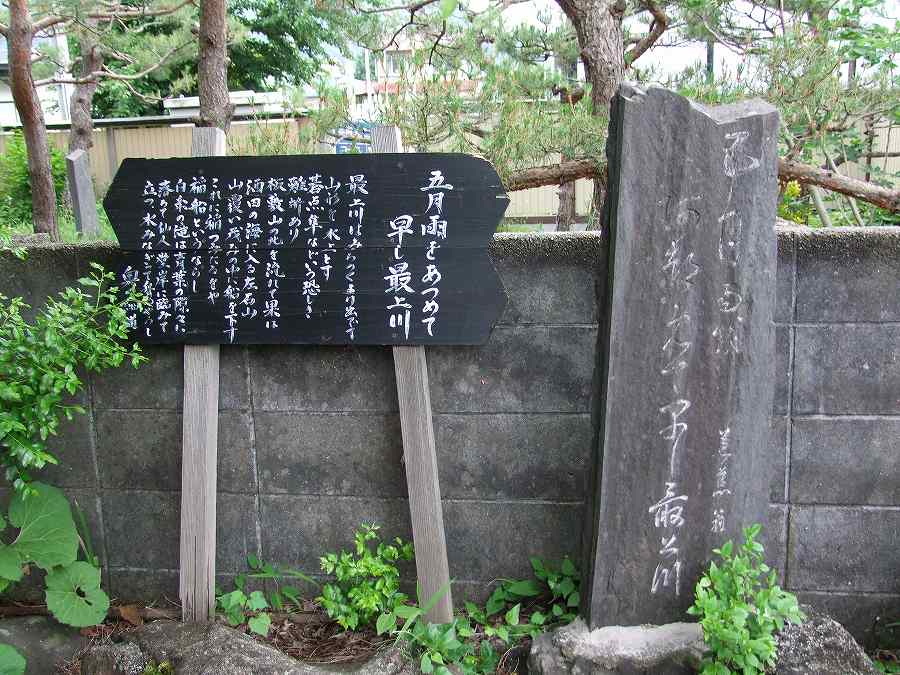 五月雨をあつめて
早し最上川
最上川はみちのくより出でて
山形を水上とす
碁点隼などいう恐しき
難所あり
板敷山の北を流れて果は
酒田の海に入る左右山
山覆い茂みの中に船を下す
これに稲つみたるをや
稲船というならし
白糸の滝は青葉の隙々に
落ちて仙人堂岸に臨みて
立つ水みなぎって舟あやうし
奥の細道
五月雨越
阿都めて早し最上川
芭蕉翁